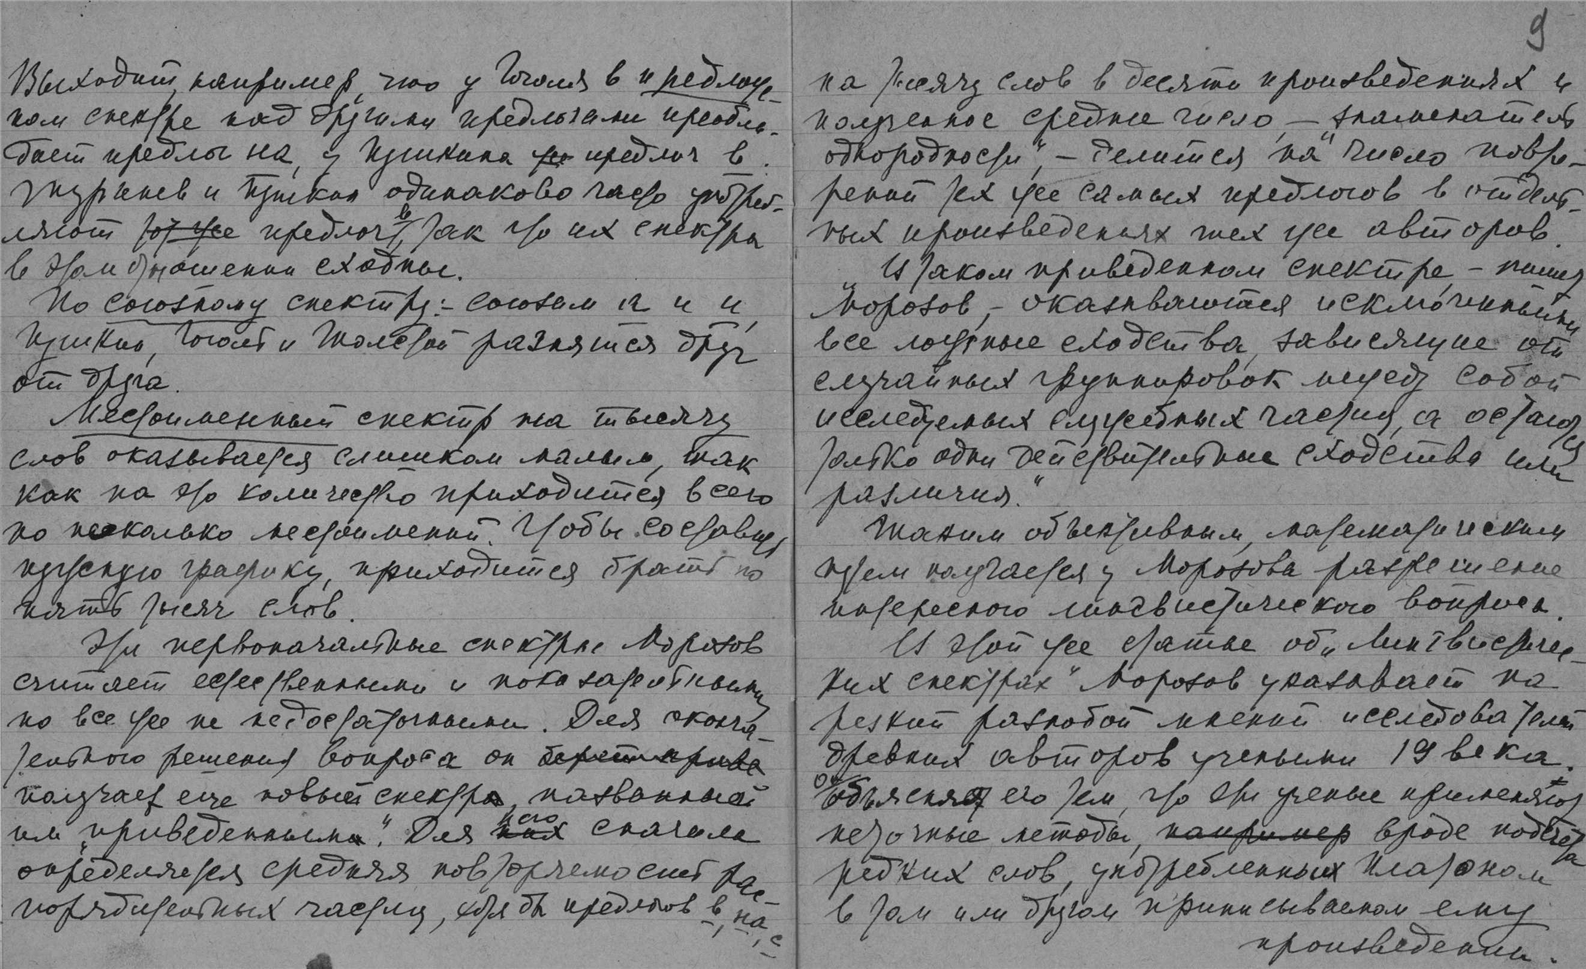 Выходит, например, что у Гоголя в предлож-
ном спектре над другими предлогами преобла-
дает предлог на, у Пушкина предлог в.
Тургенев и Пушкин одинаково часто употреб-
ляют тот же предлог в, так что их спектры
в этом отношении сходны.
По союзному спектру: – союзам а и и,
Пушкин, Гоголь и Толстой разнятся друг
от друга.
Местоименный спектр на тысячу
слов оказывается слишком малым, так
как на это количество приходится всего
по несколько местоимений. Чтобы составить
нужную графику, приходится брать по
пять тысяч слов.
Эти первоначальные спектры Морозов
считает естественными и показательными,
но все же не недостаточными. Для оконча-
тельного решения вопроса он берет приве
получает еще новый спектр, названный
им "приведенным". Для него сначала
определяется средняя повторяемость рас-
порядительных частиц, хотя бы предлогов в, на, с
9
на тысячу слов в десяти произведениях и
полученное среднее число, – "знаменатель
однородности", – делится на число повто-
рений тех же самых предлогов в отдель-
ных произведениях тех же авторов.
"В таком приведенном спектре, – пишет
Морозов, – оказываются исключенными
все ложные сходства, зависящие от
случайных группировок между собой
исследуемых служебных частиц, а остаются
только одни действительные сходства или
различия."
Таким объективным, математическим
путем получается у Морозова разрешение
интересного лингвистического вопроса.
В этой же статье об "Лингвистичес-
ких спектрах" Морозов указывает на
резкий разнобой мнений исследователей
древних авторов учеными 19 века.
Объясняет его тем, что эти ученые применяют
неточные методы, например вроде подсчета
редких слов, употребленных Платоном
в том или другом приписываемом ему
произведении.